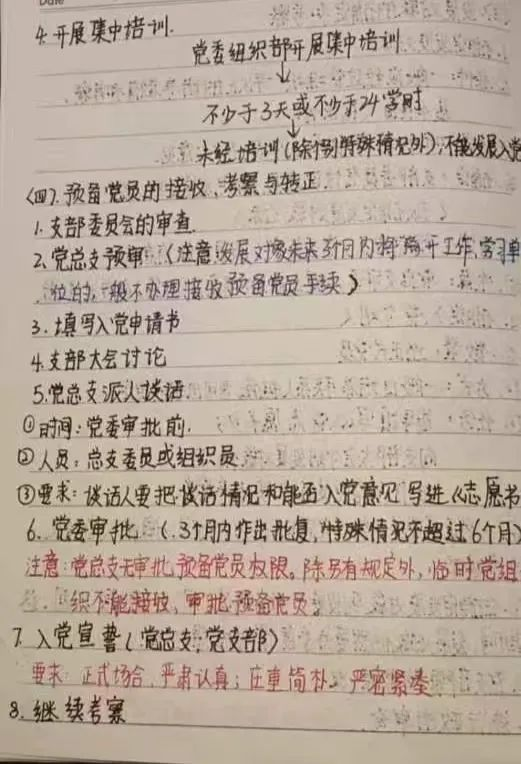 Date
4. 开展集中培训.
党委组织部开展集中培训
↓
不少于3天或不少于24学时
↓
未经培训(除个别特殊情况外),不能发展入党
<四>. 预备党员的接收、考察与转正
1. 支部委员会的审查.
2. 党总支预审 (注意:发展对象未来3个月内将离开工作、学习单
位的,一般不办理接收预备党员手续)
3. 填写入党申请书
4. 支部大会讨论
5. 党总支派人谈话.
①时间:党委审批前.
②人员:总支委员或组织员.
③要求:谈话人要把谈话情况和能否入党意见写进《志愿书
6. 党委审批 (.3个月内作出批复,特殊情况不超过6个月)
注意:党总支无审批预备党员权限。除另有规定外,临时党组
织不能接收、审批预备党员
7. 入党宣誓(党总支、党支部)
要求:正式场合、严肃认真;庄重简朴、严密紧凑
8. 继续考察